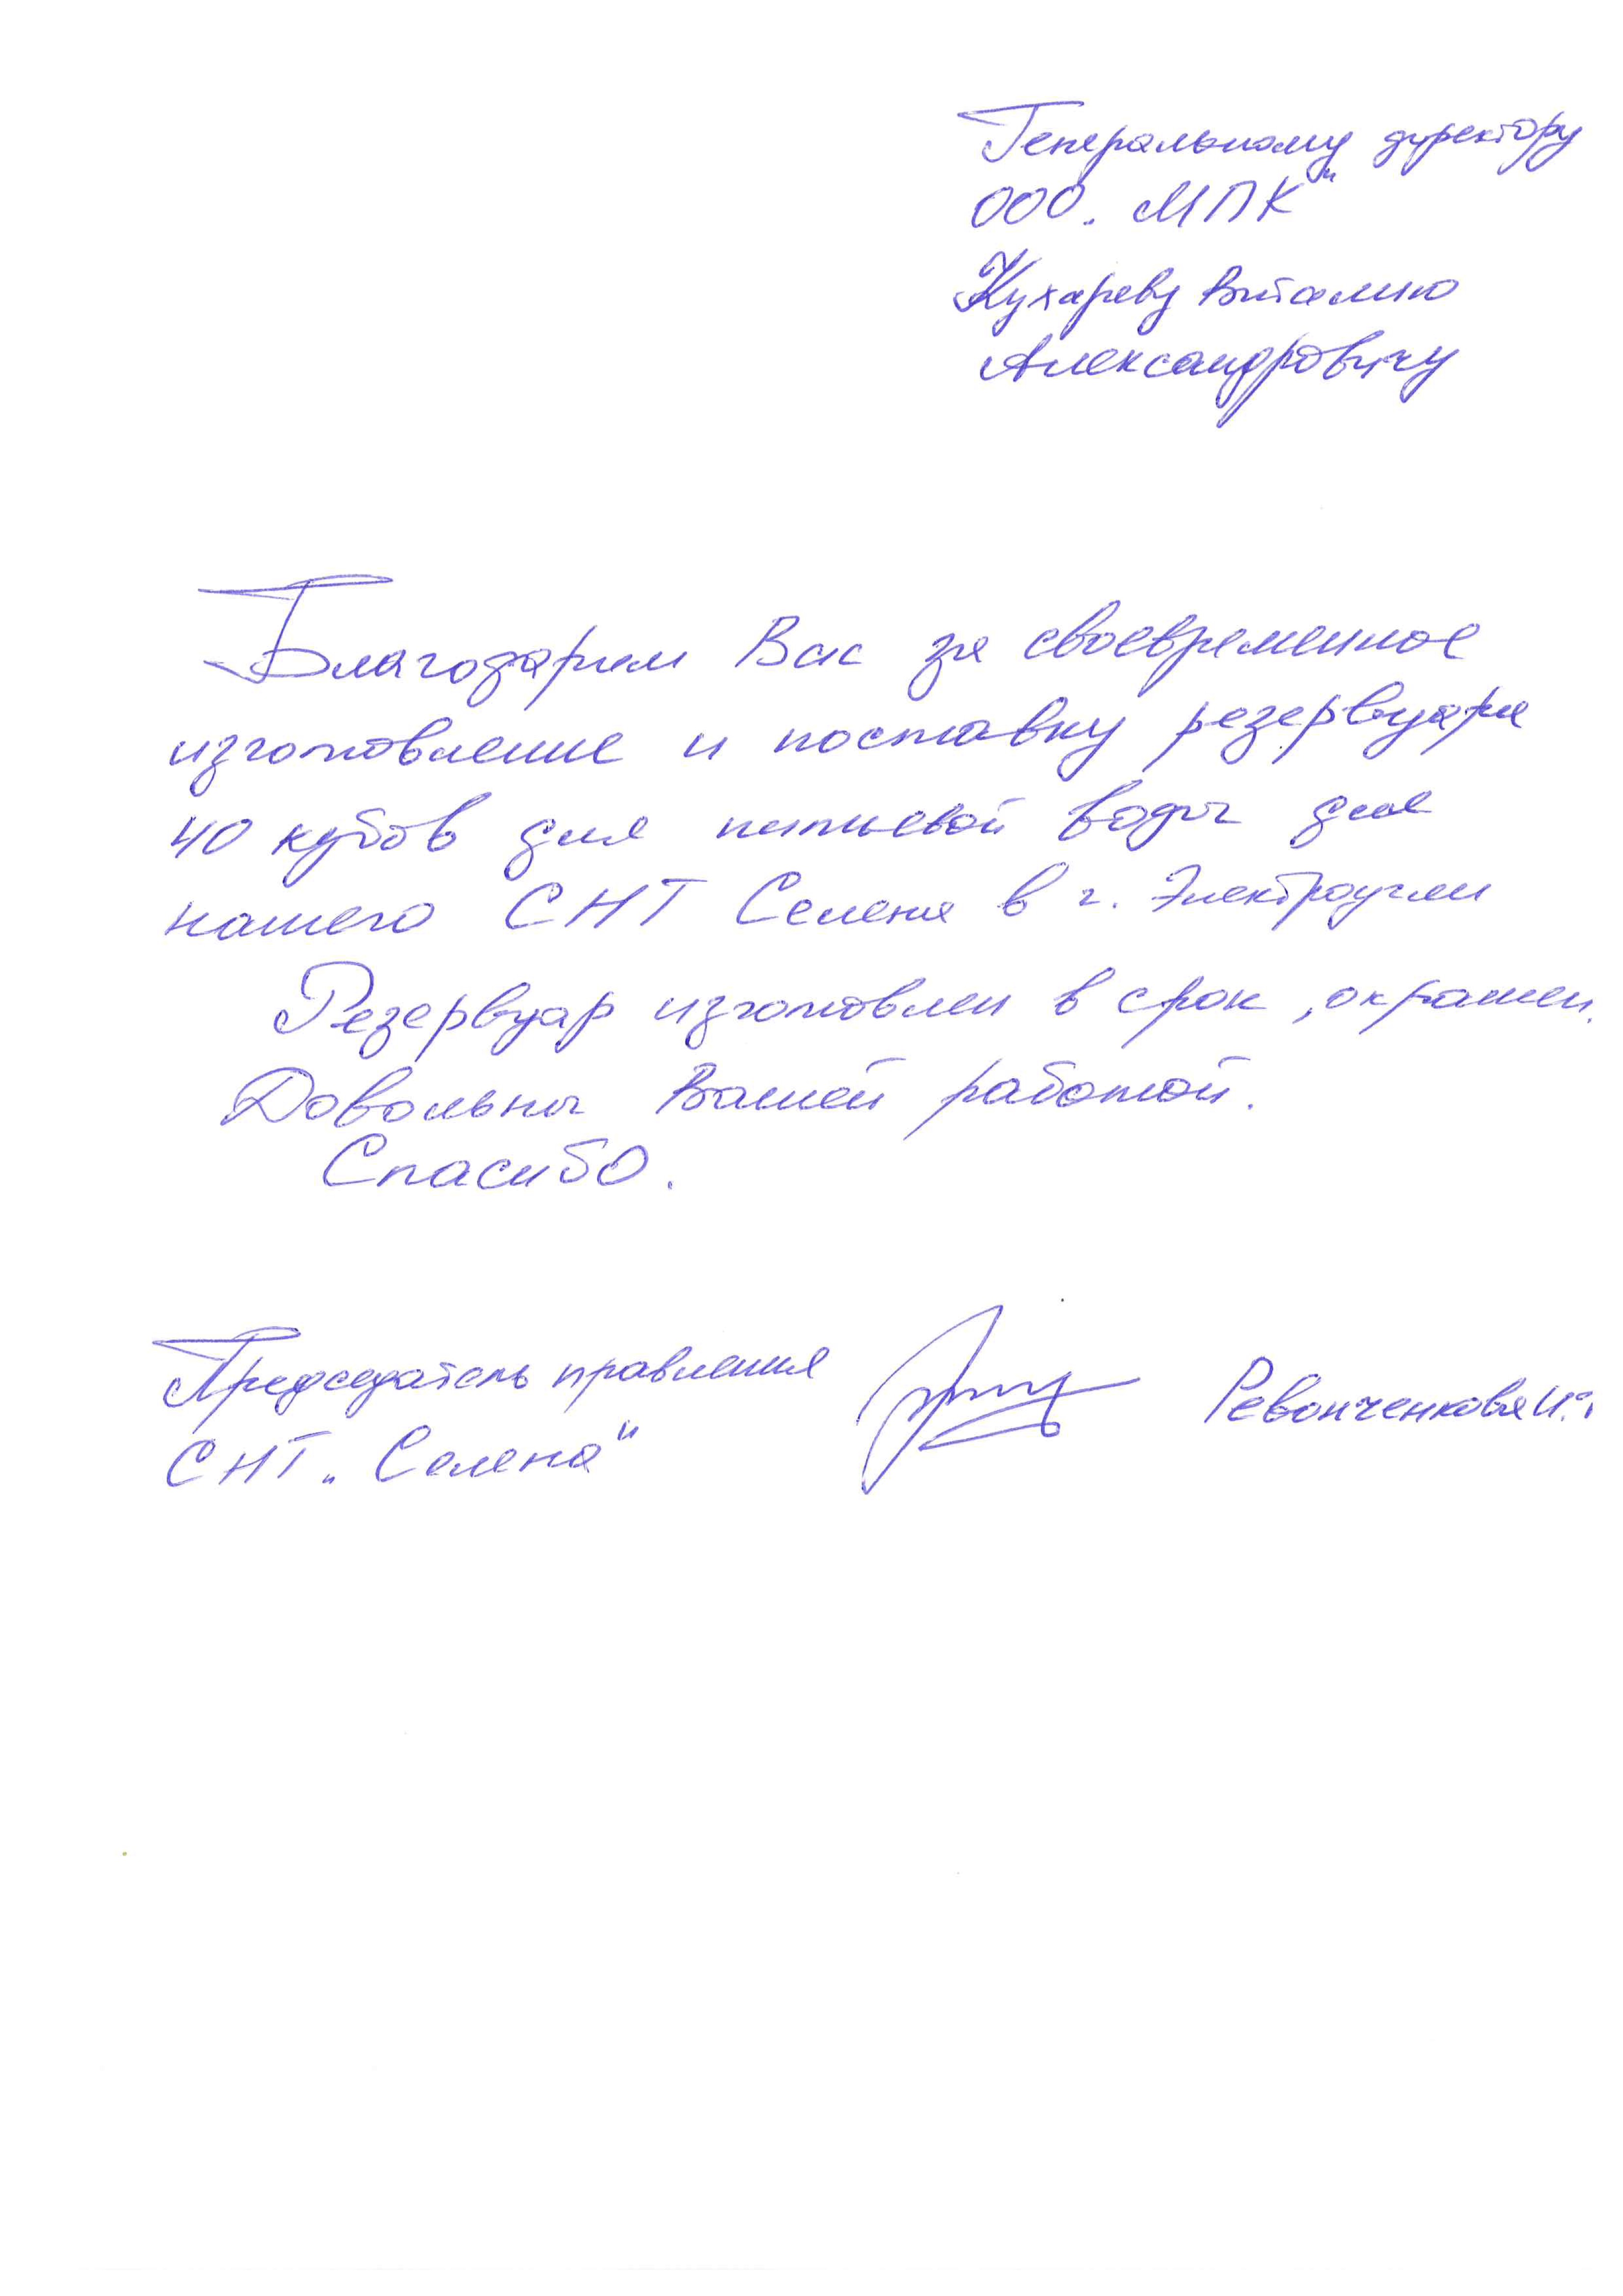 Генеральному директору
ООО „МПК"
Кухареву Виталию
Александровичу
Благодарим Вас за своевременное
изготовление и поставку резервуара
40 кубов для питьевой воды для
нашего СНТ Селена в г. Электроугли
Резервуар изготовлен в срок, окрашен.
Довольны Вашей работой.
Спасибо.
Председатель правления
СНТ „Селена"
Ревонченкова И.